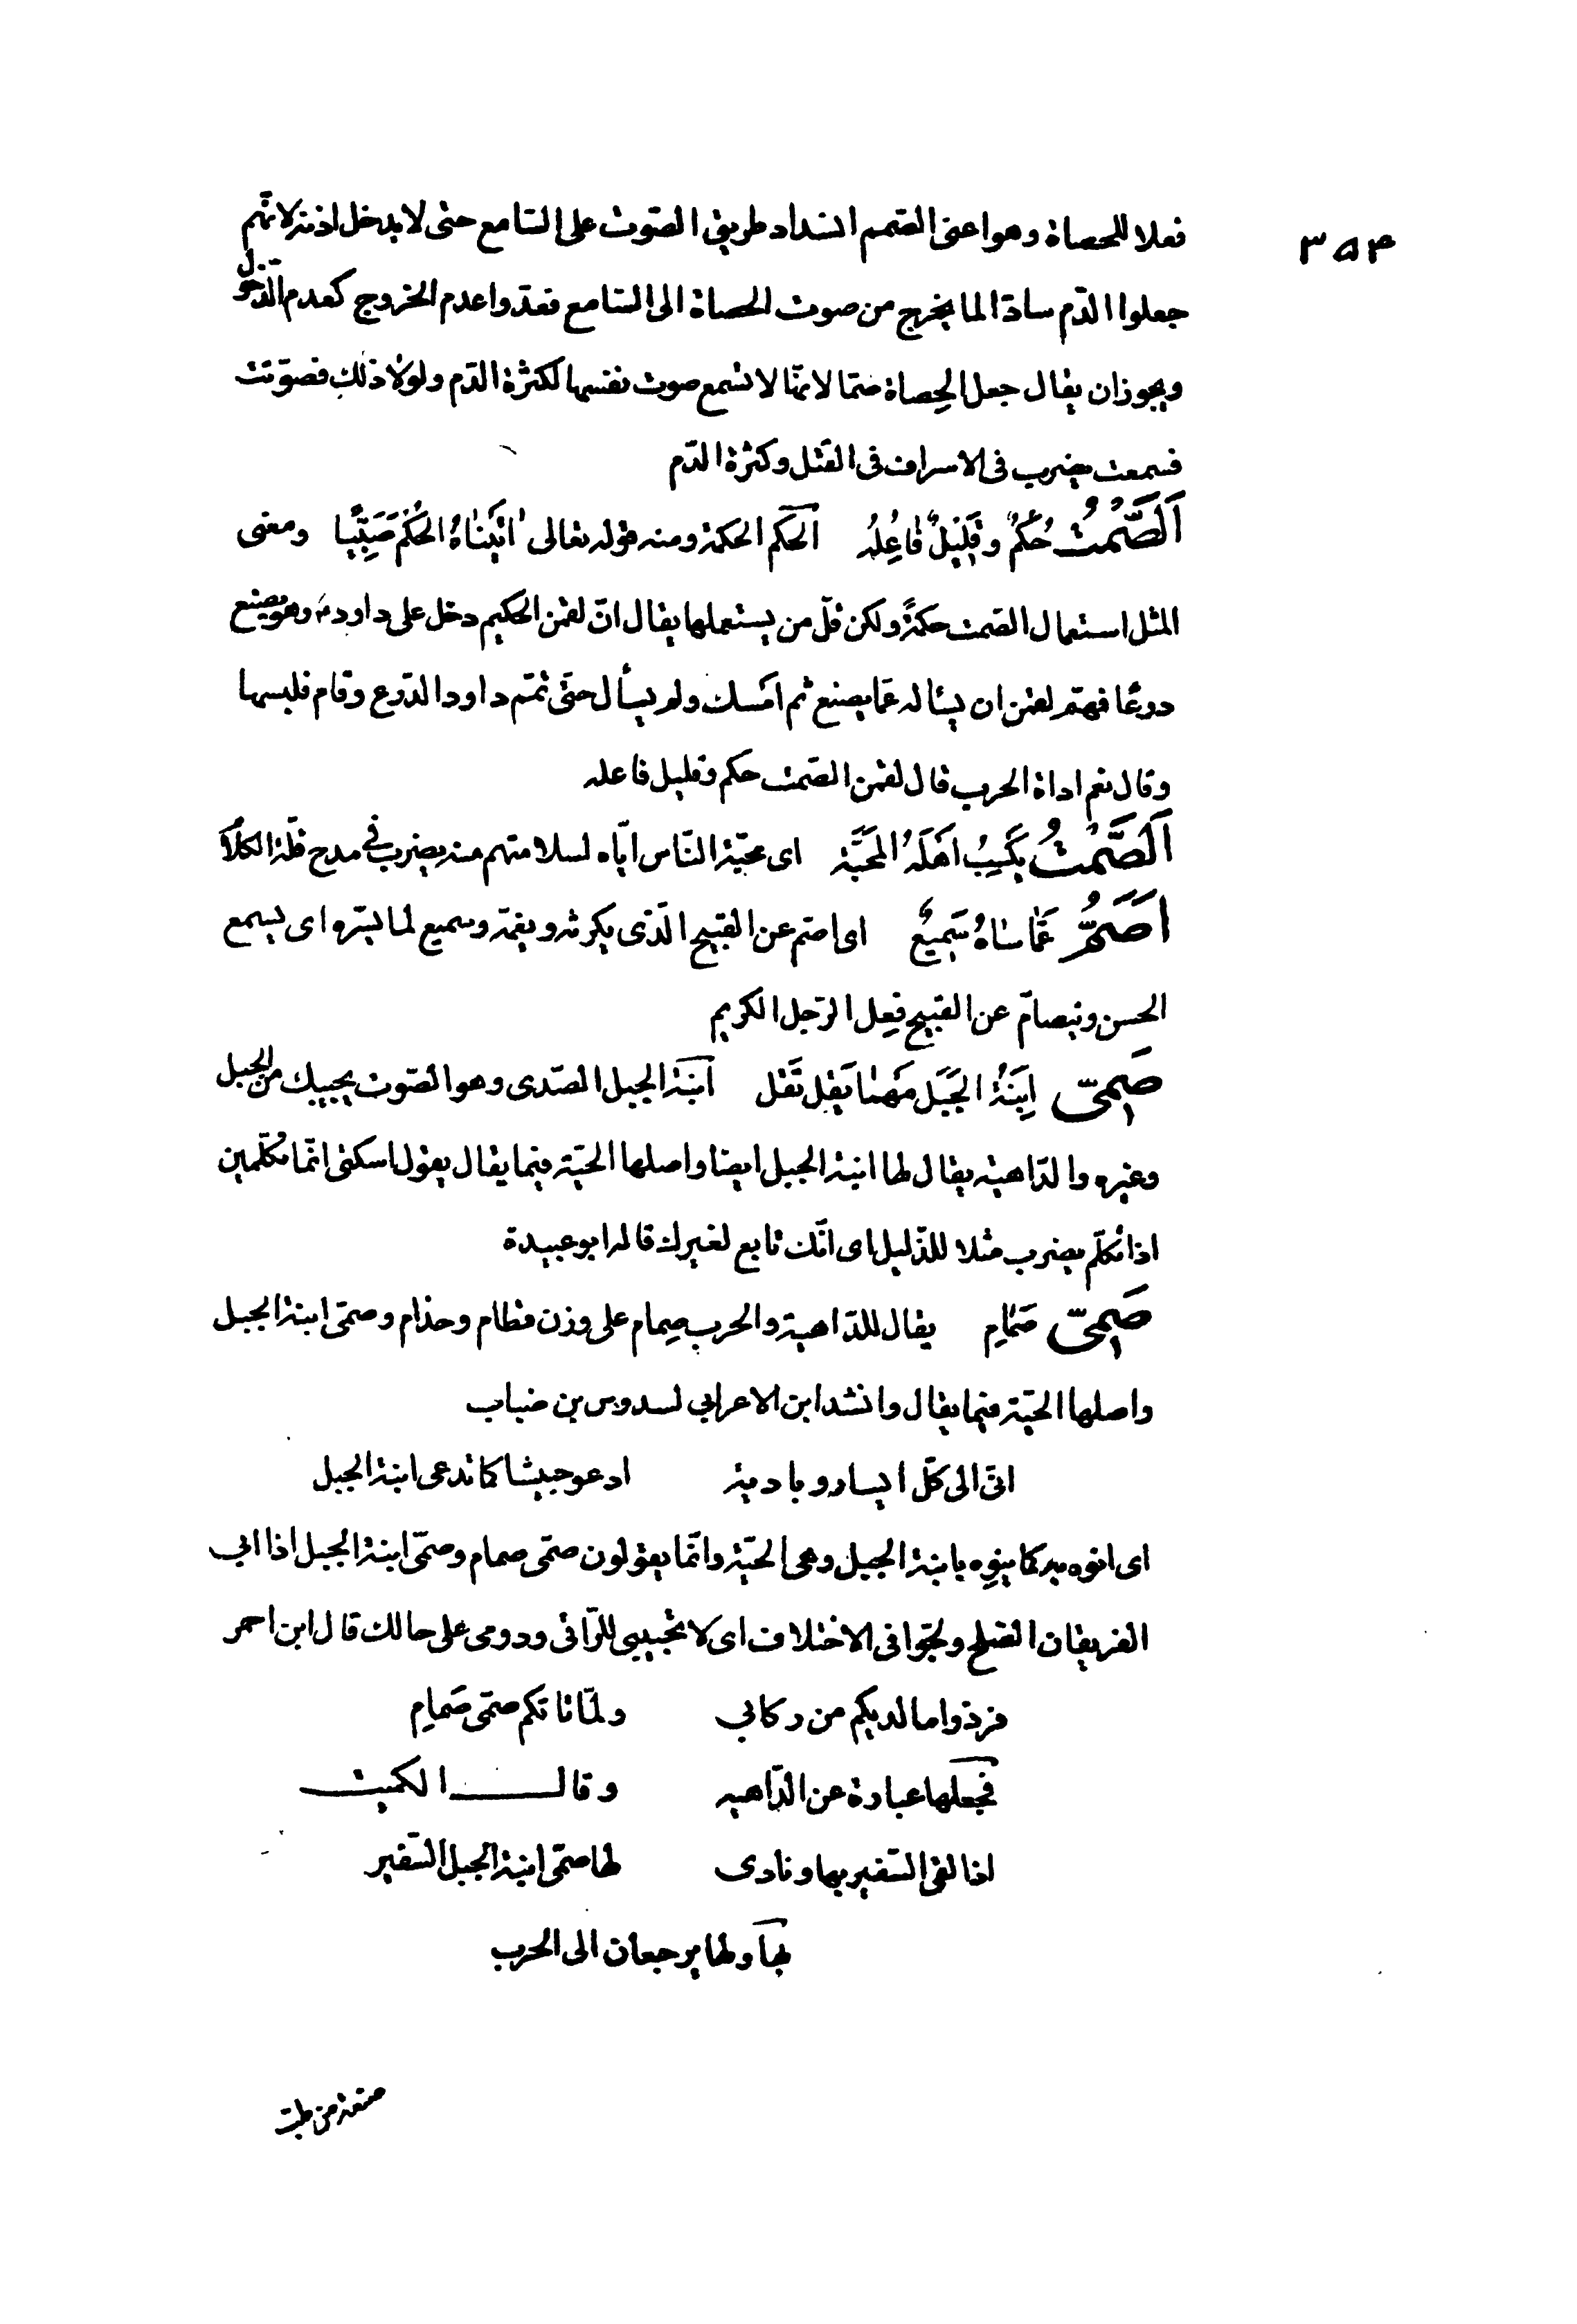 ۳۵۴
فعلا للحصاة وهو اعنى الصمم انسداد طريق الصّوت على السّامع حتى لا يدخل اذنه لانّهم
جعلوا الدّم سادّا لما يخرج من صوت الحصاة الى السّامع فعدّوا عدم الخروج كعدم الدّخول
ويجوز ان يقال جعل الحِصاة صمّا لانّها لا تسمع صوت نفسها لكثرة الدّم ولولا ذلك فصوّتت
فسمعت يضرب فى الاسراف فى القتل وكثرة الدّم
اَلصَّمْتُ حُكْمٌ وَقَلِيْلٌ فَاعِلُهُ الحكم الحكمة ومنه قوله تعالى اتَيْنَاهُ الحُكْمَ صَبِيًّا ومعنى
المثل استعمال الصّمت حكمةً ولكن قلّ من يستعملها يقال انّ لقمن الحكيم دخل على داود ؑ وهو يصنع
درعًا فهمّ لقمن ان يسأله عمّا يصنع ثم امْسك ولم يسأل حتّى تمّم داود الدّرع وقام فلبسها
وقال نعم اداة الحرب قال لقمن الصّمت حكم وقليل فاعله
اَلصَّمْتُ يَكْسِبُ اَهْلَهُ المَحَبَّةَ اى محبّة النّاس ايّاه لسلامتهم منه يضرب فى مدح قلّة الكلام
اَصَمُّ عَمَّا سَاءَهُ سَمِيعٌ اى اصمّ عن القبيح الّذى يكرثه ويغمّه وسميع لما يسّره اى يسمع
الحسن ويتصامّ عن القبيح فِعل الرّجل الكريم
صَمِّىْ اِبْنَةُ الجَبَلِ مَهْمَا يُقَل تَقُل ابنة الجبل الصّدى وهو الصّوت يجيبك من الجبل
وغيره والدّاهية يقال لها ابنة الجبل ايضا واصلها الحيّة فيما يقال يقول اسكتى انّما تكلّمين
اذا تُكلّم يضرب مثلا للذّليل اى انّك تابع لغيرك قاله ابو عبيدة
صَمِّىْ صَمَامِ يقال للدّاهية والحرب صِمام على وزن قطام وحذام وصمّى ابنة الجبل
واصلها الحيّة فيما يقال وانشد ابن الاعرابى لسدوس بن ضباب
انّى الى كلّ ايسار وبادية ادعو حبيشا كما تدعى ابنة الجبل
اى انوّه به كما ينوِّه بابنة الجبل وهى الحيّة وانّما يقولون صمّى صمام وصمّى ابنة الجبل اذا ابى
الفريقان الصّلح ولجّوا فى الاختلاف اى لا تجيبى للرّاقى ودومى على حالك قال ابن احمر
فردّوا ما لديكم من ركابى ولمّا تاتكم صمّى صَمامِ
فجعلها عبارة عن الدّاهيه وقال الكميت
اذا لقى السّفير بها ونادى لها صمّى ابنة الجبل السّفير
بها ولها يرجعان الى الحرب